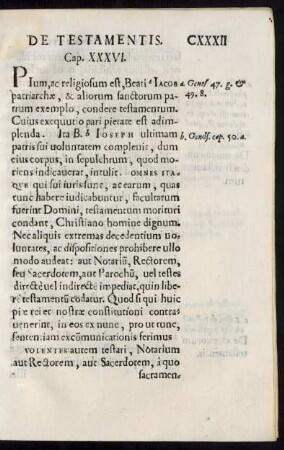 DE TESTAMENTIS. CXXXII
Cap. XXXVI.
PIum, ac religiosum est, Beati a IACOB
a. Genes 47. g. &
49. 8.
patriarchæ, & aliorum sanctorum pa-
trum exemplo, condere testamentum.
Cuius exequutio pari pietate est adim-
plenda. Ita B. b IOSEPH ultimam
b. Genes. cap. 50. a.
patris sui uoluntatem complenit, dum
eius corpus, in sepulchrum, quod mo-
riens indicauerat, intulit. OMNES ITA-
QVE qui sui iuris sunt, ac earum, quas
tunc habere iudicabuntur, facultatum
fuerint Domini, testamentum morituri
condant, Christiano homine dignum.
Nec aliquis extremas decedentium uo-
luntates, ac dispositiones prohibere ullo
modo audeat: aut Notariū, Rectorem,
seu Sacerdotem, aut Parochū, uel testes
directè uel indirectè impediat, quin libe-
rè testamentū condatur. Quod si qui huic
pie rei et nostræ constitutioni contra-
uenerint, in eos ex nunc, pro ut tunc,
sententiam excōmunicationis ferimus
VOLENTES autem testari, Notarium
aut Rectorem, aut Sacerdotem, à quo
sacramen-